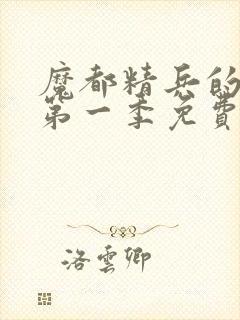 魔都精兵的
第一季免費
洛雲卿